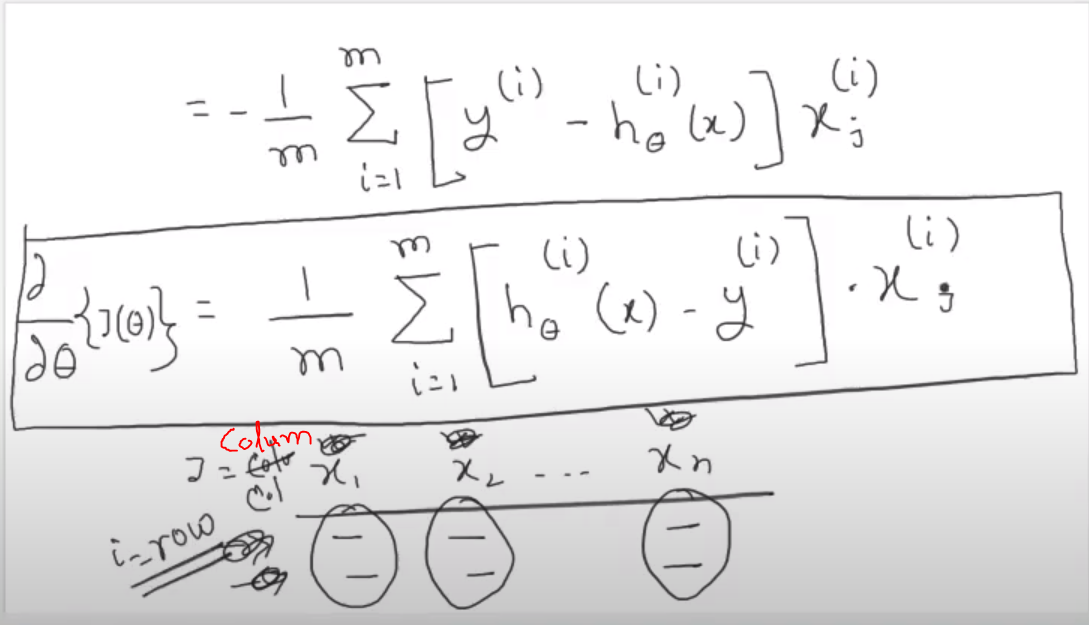 = - 1/m Σ_{i=1}^{m} [ y^{(i)} - h_θ^{(i)} (x) ] x_j^{(i)}
∂/∂θ {J(θ)} = 1/m Σ_{i=1}^{m} [ h_θ^{(i)} (x) - y^{(i)} ] . x_j^{(i)}
Colum
J = Col x_1 x_2 .... x_n
i = row